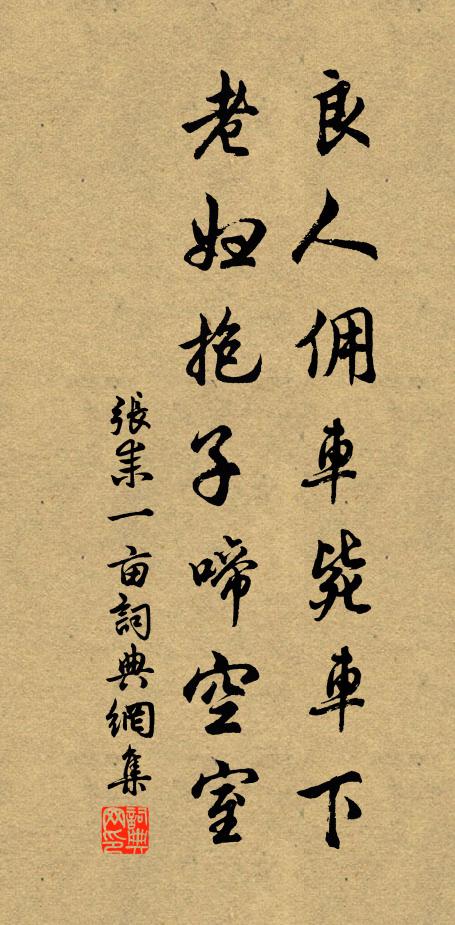 良人佣車毙車下
老妇抱子啼空室
張耒一亩詞典網集
詞典网印